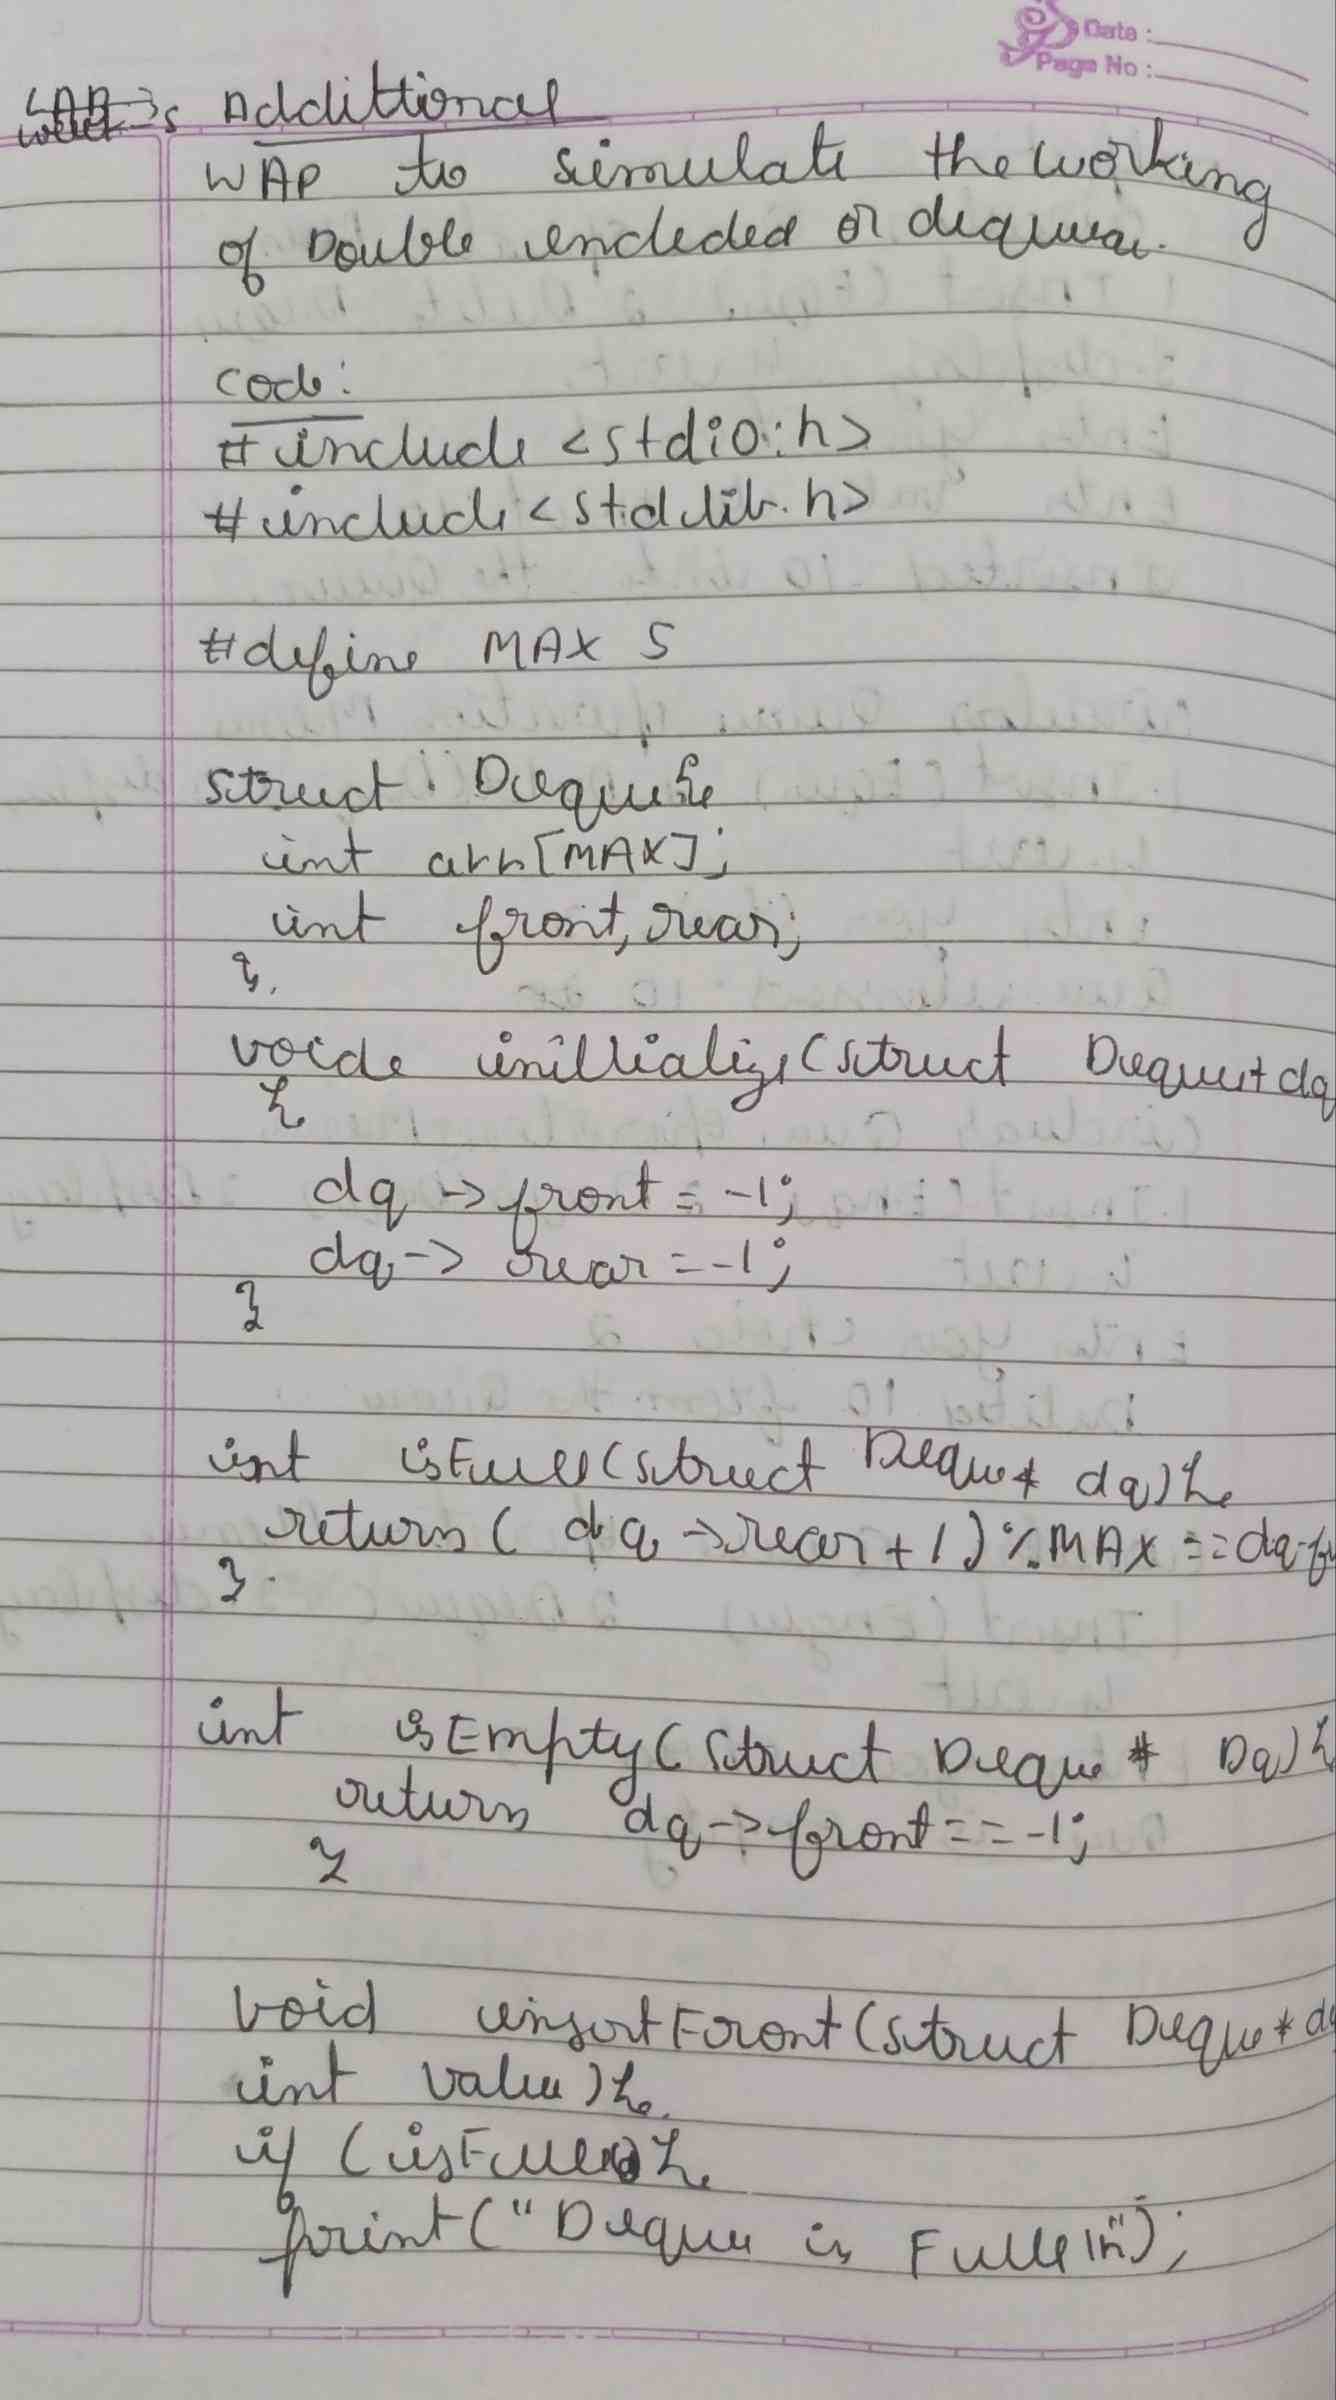 Date :
Page No :
Addittional
WAP to simulate the working
of Double endeded or dequeue.
code:
#include <stdio.h>
#include <stdlib.h>
#define MAX 5
struct Deque {
int arr[MAX];
int front, rear;
}.
voide inillialize(struct Deque* dq
{
dq -> front = -1;
dq -> rear = -1;
}
int isFull(struct Deque* dq) {
return ( dq -> rear + 1) % MAX == dq-fr
}.
int isEmpty( struct Deque * Dq) {
return dq -> front == -1;
}
void insertFront(struct Deque * dq
int value) {
if (isFull {
print("Deque is Full\n");